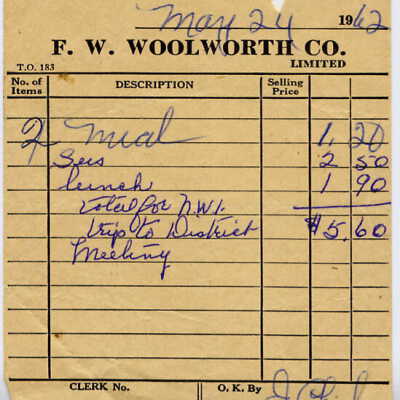 May 24 1962
F. W. WOOLWORTH CO.
LIMITED
T.O. 183
No. of Items DESCRIPTION Selling Price
2 Meal 1, 20
2 50
lunch 1 90
total for N.W.I.
trip to District $5,60
Meeting
CLERK No. O. K. By